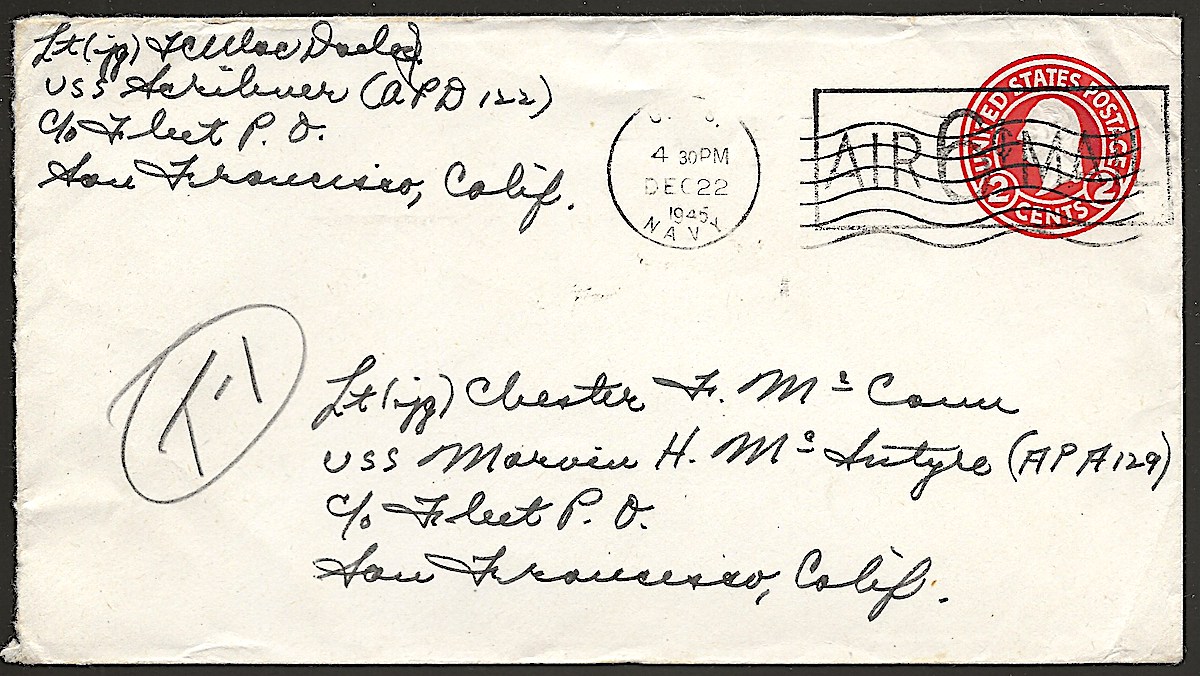 Lt(jg)
USS Scribner (APD 122)
c/o Fleet P. O.
San Francisco, Calif.
4 30 PM
DEC 22
1945
NAVY
AIR 6¢ MAIL
UNITED STATES POSTAGE
2 CENTS 2
Lt(jg) Chester F. Mc Cann
USS Marvin H. Mc Intyre (APA 129)
c/o Fleet P. O.
San Francisco, Calif.